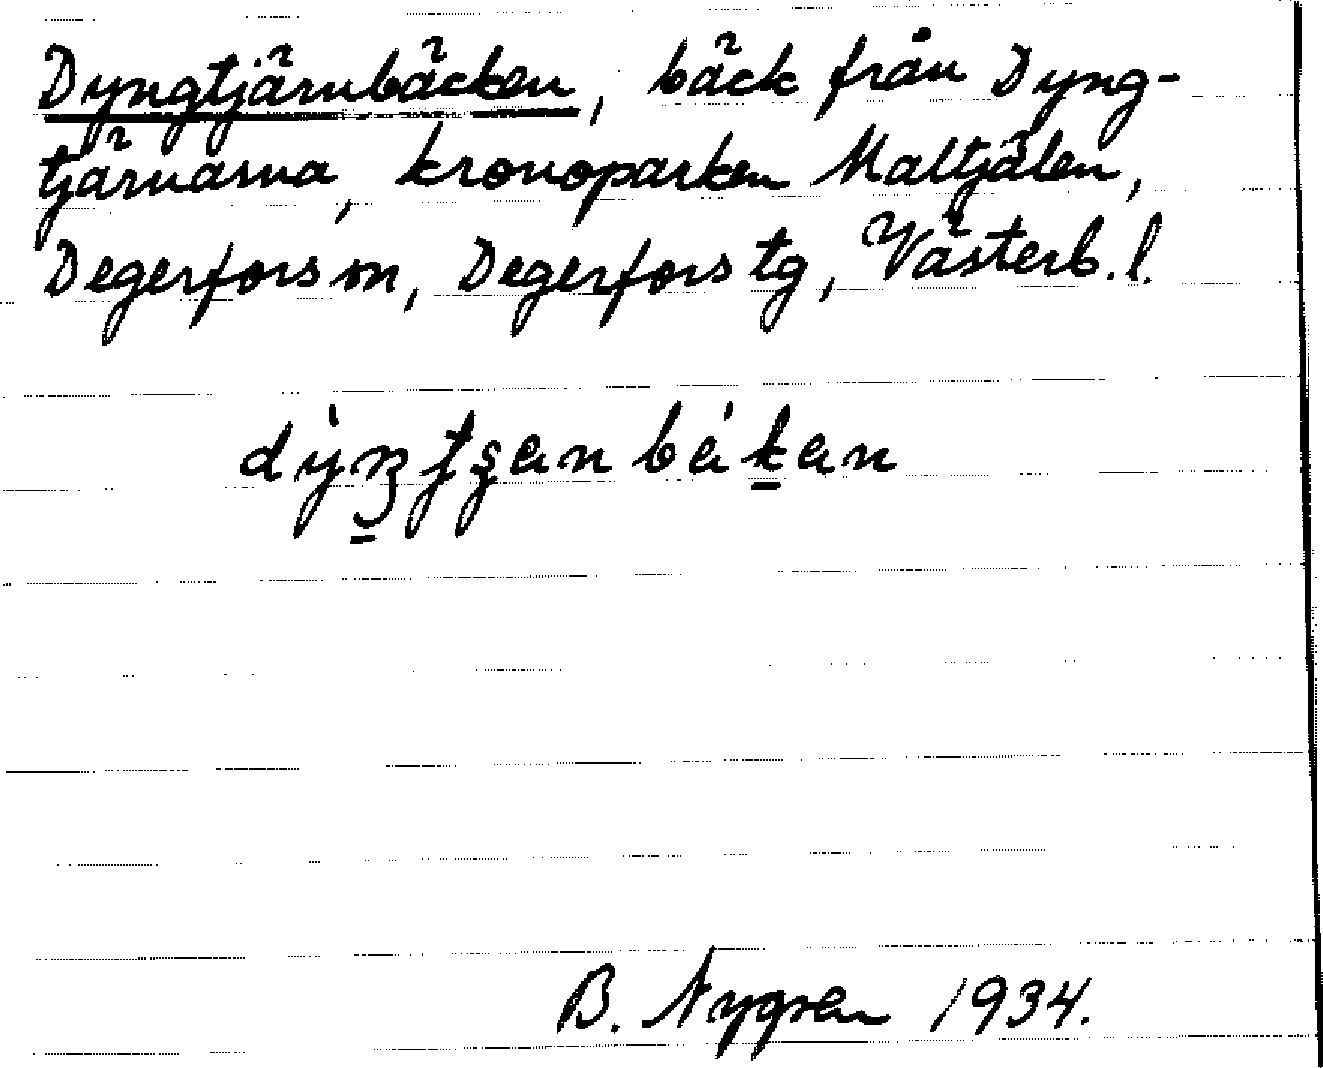 Dyngtjärnbäcken, bäck från Dyng-
tjärnarna, kronoparken Maltjälen,
Degerfors sn, Degerfors tg, Västerb. l.
B. Nygren 1934.